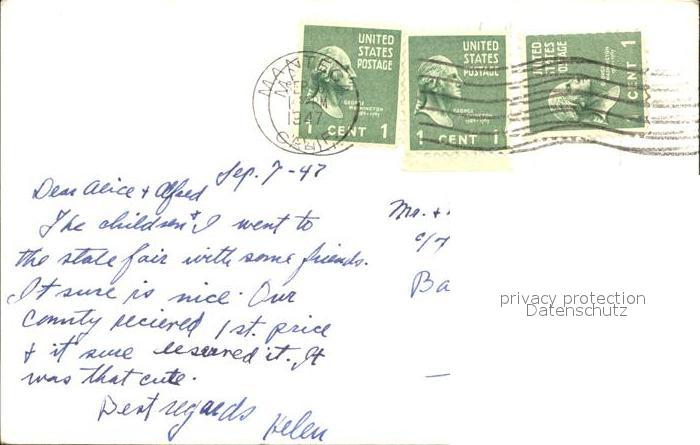 UNITED
STATES
POSTAGE
GEORGE
WASHINGTON
1 CENT 1
UNITED
STATES
POSTAGE
GEORGE
WASHINGTON
1 CENT 1
UNITED
STATES
POSTAGE
1 CENT 1
MANTECA
1947
CALIF.
Sep. 7-47
Dear Alice + Alfred
The children + I went to
the state fair with some friends.
It sure is nice. Our
county recieved 1st. price
+ it sure deserved it. It
was that cute.
Best regards
Helen
Mr. +
c/o
Ba
privacy protection
Datenschutz